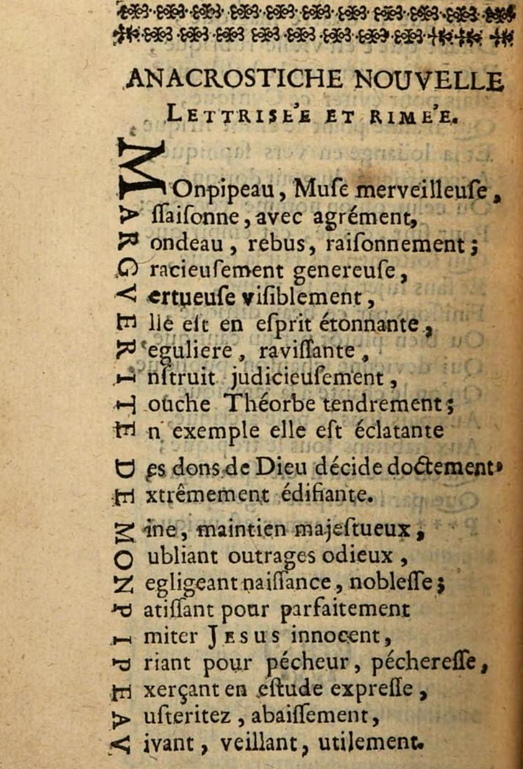 ANACROSTICHE NOUVELLE
LETTRISÉ'E ET RIMÉ'E.
MOnpipeau, Muſe merveilleuſe,
Aſſaiſonne, avec agrément,
Rondeau, rebus, raiſonnement;
Gracieuſement genereuſe,
Vertueuſe viſiblement,
Elle eſt en eſprit étonnante,
Reguliere, raviſſante,
Inſtruit judicieuſement,
Touche Théorbe tendrement;
En exemple elle eſt éclatante
Des dons de Dieu décide doctement,
Extrêmement édifiante.
Mine, maintien majeſtueux,
Oubliant outrages odieux,
Negligeant naiſſance, nobleſſe;
Patiſſant pour parfaitement
Imiter JESUS innocent,
Priant pour pécheur, péchereſſe,
Exerçant en eſtude expreſſe,
Auſteritez, abaiſſement,
Vivant, veillant, utilement.